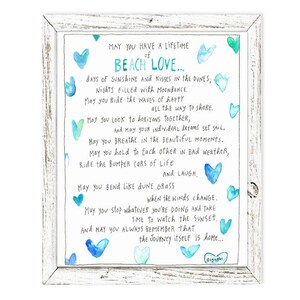 MAY YOU HAVE A LIFETIME
of
BEACH LOVE...
DAYS OF SUNSHINE AND KISSES IN THE DUNES,
NIGHTS FILLED WITH MOONDANCE.
MAY YOU RIDE THE WAVES OF HAPPY
ALL THE WAY TO SHORE.
MAY YOU LOOK TO HORIZONS TOGETHER,
AND MAY YOUR INDIVIDUAL DREAMS SET SAIL.
MAY YOU BREATHE IN THE BEAUTIFUL MOMENTS,
MAY YOU HOLD TO EACH OTHER IN BAD WEATHER,
RIDE THE BUMPER CARS OF LIFE
AND LAUGH.
MAY YOU BEND LIKE DUNE GRASS
WHEN THE WINDS CHANGE.
MAY YOU STOP WHATEVER YOU'RE DOING AND TAKE
TIME TO WATCH THE SUNSET.
AND MAY YOU ALWAYS REMEMBER THAT
THE JOURNEY ITSELF IS HOME...